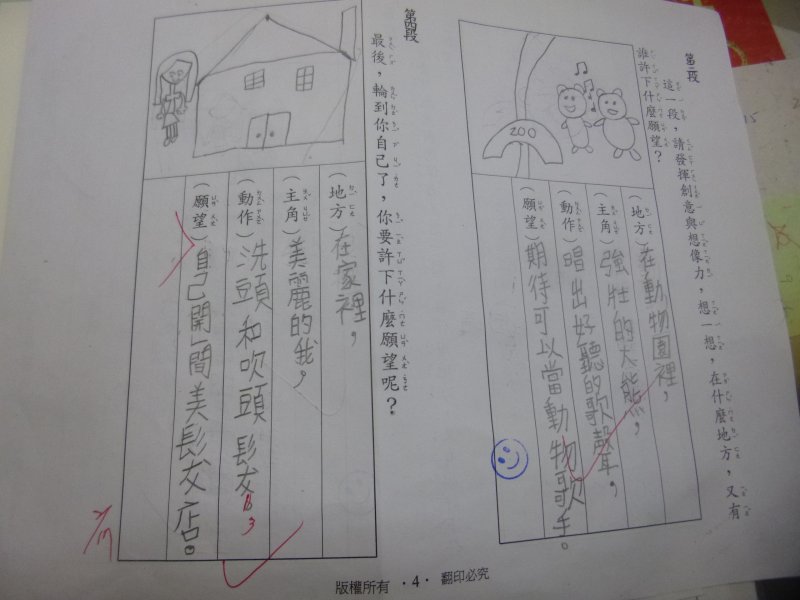 第三段
這一段，請發揮創意與想像力，想一想，在什麼地方，又有
誰許下什麼願望？
ZOO
（地方）在動物園裡，
（主角）強壯的大熊，
（動作）唱出好聽的歌聲，
（願望）期待可以當動物歌手。
第四段
最後，輪到你自己了，你要許下什麼願望呢？
（地方）在家裡，
（主角）美麗的我，
（動作）洗頭和吹頭髮，
（願望）自己開一間美髮店。
版權所有 ·4· 翻印必究